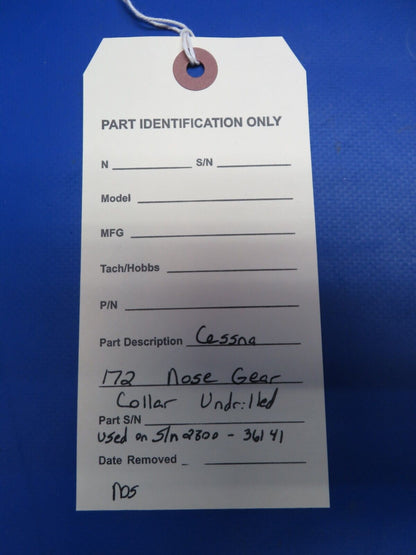 PART IDENTIFICATION ONLY
N S/N
Model
MFG
Tach/Hobbs
P/N
Part Description Cessna
172 Nose Gear
Collar Undrilled
Part S/N
Used on S/n 2800 - 36141
Date Removed
NOS